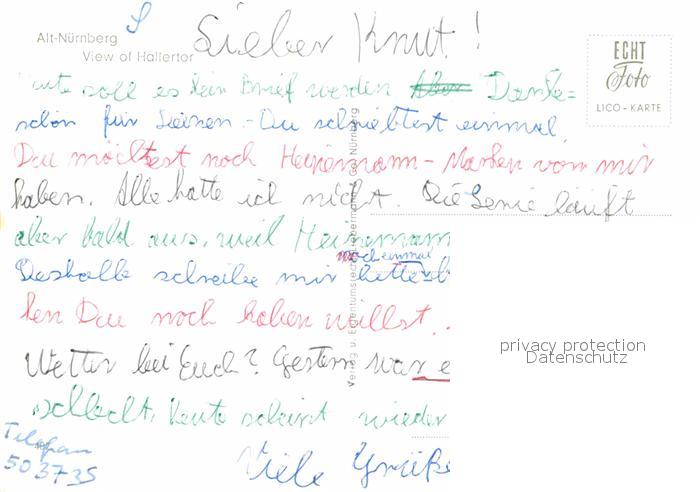 Alt-Nürnberg
View of Hallertor
Lieber Knut!
ECHT
Foto
LICO-KARTE
soll es kein Brief werden Aber Danke=
schön für Deinen. Du schriebtest einmal,
Du möchtest noch Heinemann-Marken von mir
haben. Alle hatte ich nicht. Die Serie läuft
aber bald aus, weil Heinemann
noch einmal
Deshalb schreibe mir bitte
ken Du noch haben willst.
Wetter bei Euch? Gestern war e
schlecht, heute scheint wieder
Viele Grüße
Telefon
503735
Verlag u. Eigentumsrecht Liebermann & Co., Nürnberg
privacy protection
Datenschutz